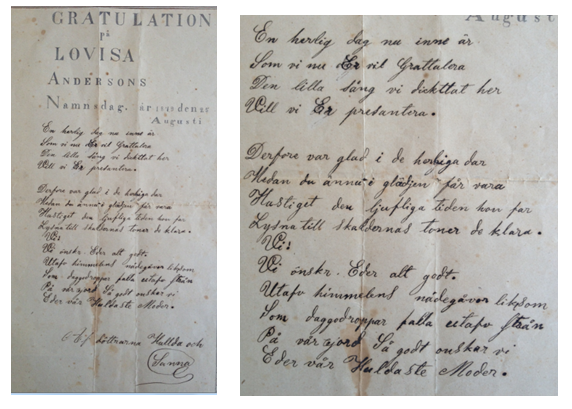 GRATULATION
på
LOVISA
ANDERSONS
Namnsdag. år denas
Augusti
En herlig dag nu inne är
Som vi nu Er vil Grattulera
Den lilla sång vi dickttat her
Will vi Er presantera.
Derfore var glad i de herliga dar
Medan du ännu i glädjen får vara
Hastiget den ljufliga tiden hon far
Lysna till skaldernas toner de klara.
Vi:
Vi önskr. Eder alt godt.
Utafv himmelens nådegåvor liksom
Som daggdroppar falla utafv
På vår jord Så godt onskar vi
Eder vår Huldaste Moder.
döttrarna Hullda och
Sanna
August
En herlig dag nu inne är
Som vi nu Er vil Grattulera
Den lilla sång vi dickttat her
Will vi Er presantera.
Derfore var glad i de herliga dar
Medan du ännu i glädjen får vara
Hastiget den ljufliga tiden hon far
Lysna till skaldernas toner de klara.
Vi:
Vi önskr. Eder alt godt.
Utafv himmelens nådegåvor liksom
Som daggdroppar falla utafv
På vår jord Så godt onskar vi
Eder vår Huldaste Moder.